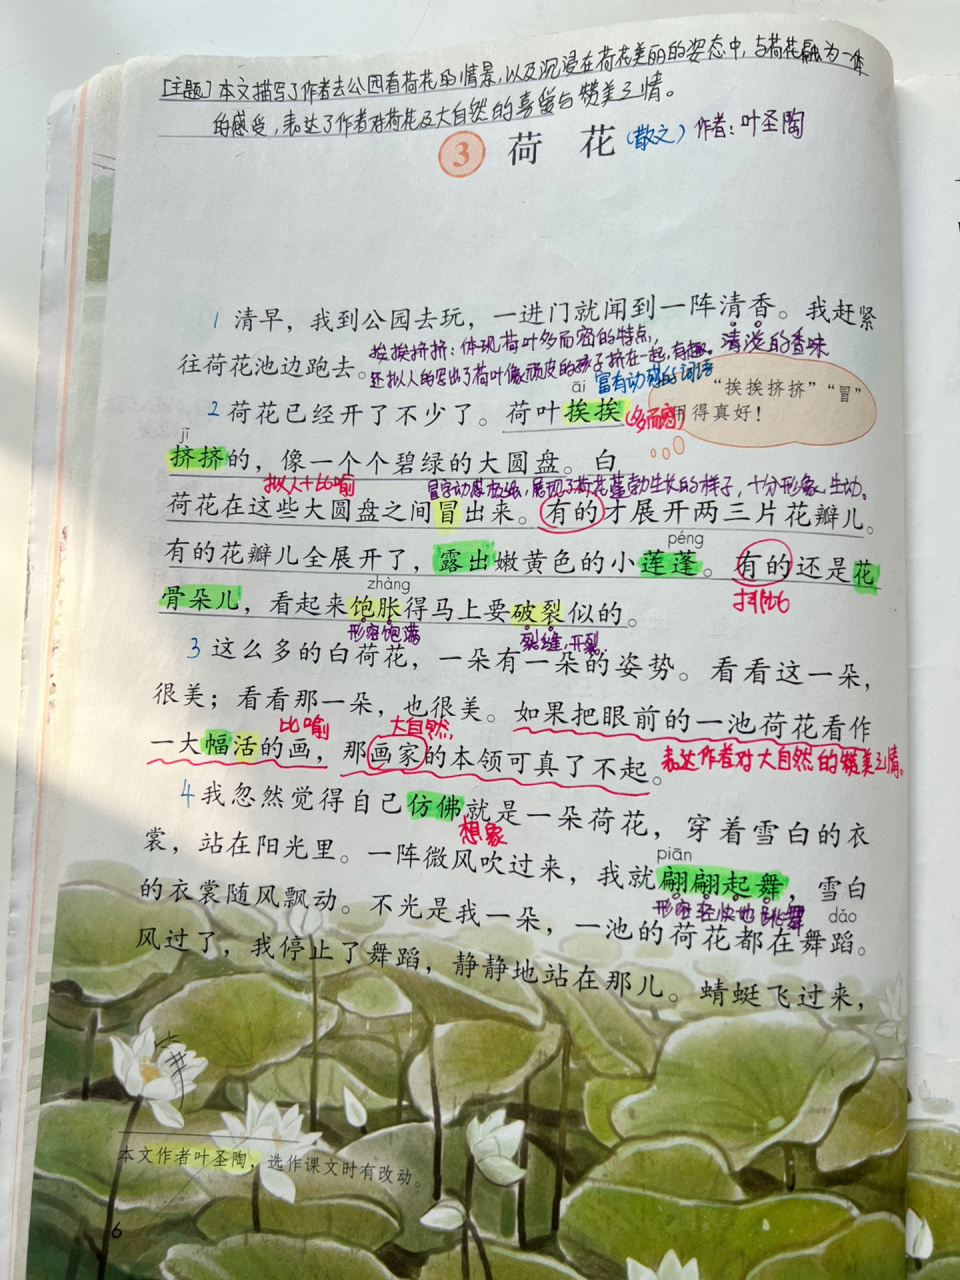 [主题]本文描写了作者去公园看荷花的情景,以及沉浸在荷花美丽的姿态中,与荷花融为一体
的感受,表达了作者对荷花及大自然的喜爱与赞美之情。
3 荷花 (散文) 作者:叶圣陶
1 清早,我到公园去玩,一进门就闻到一阵清香。我赶紧
挨挨挤挤:体现荷叶多而密的特点,
清淡的香味
往荷花池边跑去。
还拟人的写出了荷叶像顽皮的孩子挤在一起,有趣。
富有动感的词语
āi
“挨挨挤挤”“冒”
用得真好!
2 荷花已经开了不少了。荷叶挨挨
(多而密)
jǐ
挤挤的,像一个个碧绿的大圆盘。白
拟人+比喻
冒字动感极强,展现了荷花蓬勃生长的样子,十分形象、生动。
荷花在这些大圆盘之间冒出来。有的才展开两三片花瓣儿。
péng
有的花瓣儿全展开了,露出嫩黄色的小莲蓬。有的还是花
排比
zhàng
骨朵儿,看起来饱胀得马上要破裂似的。
形容饱满
裂缝,开裂。
3 这么多的白荷花,一朵有一朵的姿势。看看这一朵,
很美;看看那一朵,也很美。如果把眼前的一池荷花看作
比喻
大自然
一大幅活的画,那画家的本领可真了不起。
表达作者对大自然的赞美之情。
4 我忽然觉得自己仿佛就是一朵荷花,穿着雪白的衣
想象
裳,站在阳光里。一阵微风吹过来,我就翩翩起舞,雪白
piān
形容轻快地跳舞
的衣裳随风飘动。不光是我一朵,一池的荷花都在舞蹈。
dǎo
风过了,我停止了舞蹈,静静地站在那儿。蜻蜓飞过来,
本文作者叶圣陶,选作课文时有改动。
6